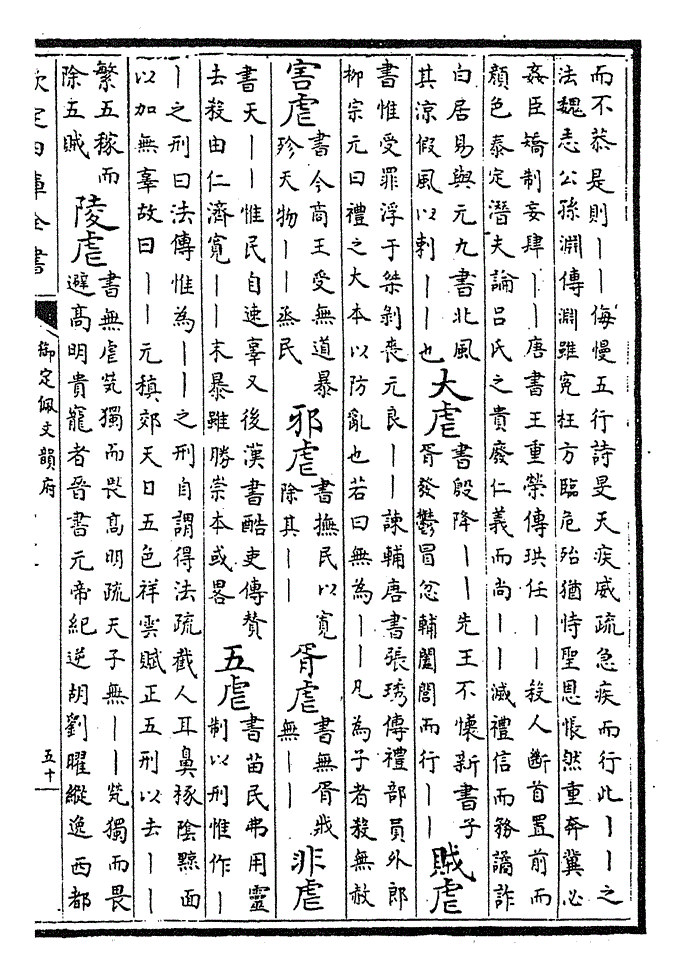 而不恭是則丨丨侮慢五行詩旻天疾威疏急疾而行此丨丨之
法魏志公孫淵傳淵雖寃枉方臨危殆猶恃聖恩悵然重奔冀必
姦臣矯制妄肆丨丨唐書王重榮傳珙任丨丨殺人斷首置前而
顔色泰定潛夫論呂氏之貴廢仁義而尚丨丨滅禮信而務譎詐
白居易與元九書北風
其涼假風以刺丨丨也
大虐
書殷降丨丨先王不懷新書子
胥發鬱冒忿輔闔閭而行丨丨
賊虐
書惟受罪浮于桀剝喪元良丨丨諫輔唐書張琇傳禮部員外郎
柳宗元曰禮之大本以防亂也若曰無為丨丨凡為子者殺無赦
害虐
書今商王受無道暴
殄天物丨丨烝民
邪虐
書撫民以寛
除其丨丨
胥虐
書無胥戕
無丨丨
非虐
書天丨丨惟民自速辜又後漢書酷吏傳贊
去殺由仁濟寛丨丨末暴雖勝崇本或畧
五虐
書苗民弗用靈
制以刑惟作丨
丨之刑曰法傳惟為丨丨之刑自謂得法疏截人耳鼻椓陰黥面
以加無辜故曰丨丨元稹郊天日五色祥雲賦正五刑以去丨丨
繁五稼而
除五賊
陵虐
書無虐煢獨而畏髙明疏天子無丨丨煢獨而畏
避髙明貴寵者晉書元帝紀逆胡劉曜縱逸西都
欽定四庫全書
御定佩文韻府
五十